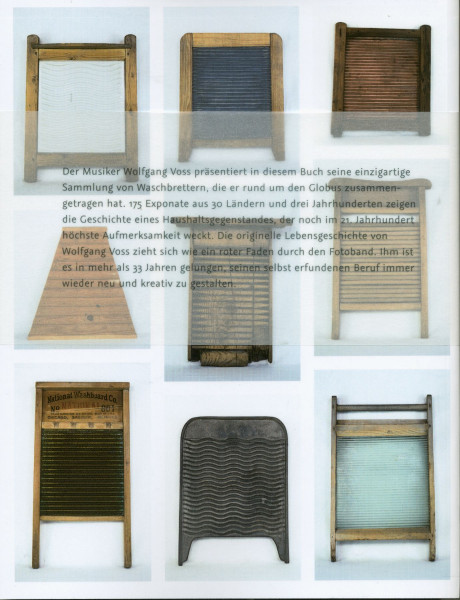 Der Musiker Wolfgang Voss präsentiert in diesem Buch seine einzigartige
Sammlung von Waschbrettern, die er rund um den Globus zusammen-
getragen hat. 175 Exponate aus 30 Ländern und drei Jahrhunderten zeigen
die Geschichte eines Haushaltsgegenstandes, der noch im 21. Jahrhundert
höchste Aufmerksamkeit weckt. Die originelle Lebensgeschichte von
Wolfgang Voss zieht sich wie ein roter Faden durch den Fotoband. Ihm ist
es in mehr als 33 Jahren gelungen, seinen selbst erfundenen Beruf immer
wieder neu und kreativ zu gestalten.
National Washboard Co.
No. 801